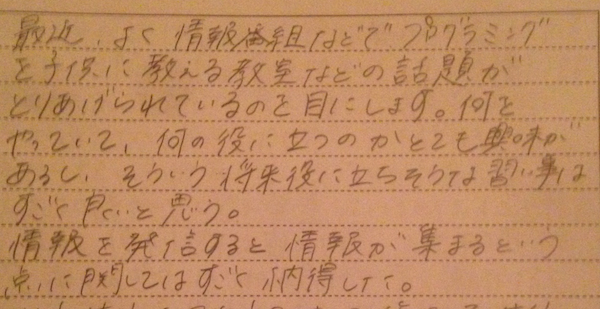 最近、よく情報番組などでプログラミング
を子供に教える教室などの話題が
とりあげられているのを目にします。何を
やっていて、何の役に立つのかとても興味が
あるし、そういう将来役に立ちそうな習い事は
すごく良いと思う。
情報を発信すると情報が集まるという
点に関してはすごく納得した。